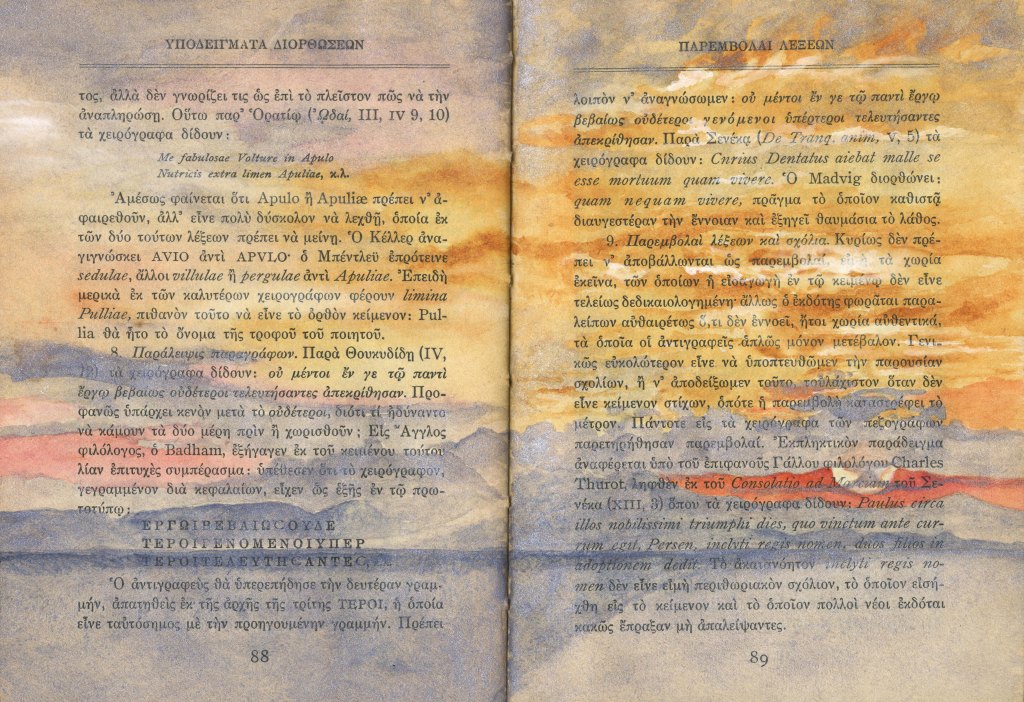 ΥΠΟΔΕΙΓΜΑΤΑ ΔΙΟΡΘΩΣΕΩΝ
τος, ἀλλὰ δὲν γνωρίζει τις ὡς ἐπὶ τὸ πλεῖστον πῶς νὰ τὴν
ἀναπληρώσῃ. Οὕτω παρ' Ὁρατίῳ (Ὠδαί, III, IV 9, 10)
τὰ χειρόγραφα δίδουν:
Me fabulosae Volture in Apulo
Nutricis extra limen Apuliae, κ.λ.
Ἀμέσως φαίνεται ὅτι Apulo ἢ Apuliæ πρέπει ν' ἀ-
φαιρεθοῦν, ἀλλ' εἶνε πολὺ δύσκολον νὰ λεχθῇ, ὁποία ἐκ
τῶν δύο τούτων λέξεων πρέπει νὰ μείνῃ. Ὁ Κέλλερ ἀνα-
γιγνώσκει AVIO ἀντὶ APVLO· ὁ Μπέντλεϋ ἐπρότεινε
sedulae, ἄλλοι villulae ἢ pergulae ἀντὶ Apuliae. Ἐπειδὴ
μερικὰ ἐκ τῶν καλυτέρων χειρογράφων φέρουν limina
Pulliae, πιθανὸν τοῦτο νὰ εἶνε τὸ ὀρθὸν κείμενον: Pul-
lia θὰ ἦτο τὸ ὄνομα τῆς τροφοῦ τοῦ ποιητοῦ.
8. Παράλειψις παραγράφων. Παρὰ Θουκυδίδῃ (IV,
τὰ χειρόγραφα δίδουν: οὐ μέντοι ἔν γε τῷ παντὶ
ἔργῳ βεβαίως οὐδέτεροι τελευτήσαντες ἀπεκρίθησαν. Προ-
φανῶς ὑπάρχει κενὸν μετὰ τὸ οὐδέτεροι, διότι τί ἠδύναντο
νὰ κάμουν τὰ δύο μέρη πρὶν ἢ χωρισθοῦν; Εἷς Ἄγγλος
φιλόλογος, ὁ Badham, ἐξήγαγεν ἐκ τοῦ κειμένου τούτου
λίαν ἐπιτυχὲς συμπέρασμα: ὑπέθεσεν ὅτι τὸ χειρόγραφον,
γεγραμμένον διὰ κεφαλαίων, εἶχεν ὡς ἑξῆς ἐν τῷ πρω-
τοτύπῳ:
ΕΡΓΩΙΒΕΒΑΙΩϹΟΥΔΕ
ΤΕΡΟΙΓΕΝΟΜΕΝΟΙΥΠΕΡ
ΤΕΡΟΙΤΕΛΕΥΤΗϹΑΝΤΕϹ
Ὁ ἀντιγραφεὺς θὰ ὑπερεπήδησε τὴν δευτέραν γραμ-
μήν, ἀπατηθεὶς ἐκ τῆς ἀρχῆς τῆς τρίτης ΤΕΡΟΙ, ἡ ὁποία
εἶνε ταὐτόσημος μὲ τὴν προηγουμένην γραμμήν. Πρέπει
88
ΠΑΡΕΜΒΟΛΑΙ ΛΕΞΕΩΝ
λοιπὸν ν' ἀναγνώσωμεν: οὐ μέντοι ἔν γε τῷ παντὶ ἔργῳ
βεβαίως οὐδέτεροι γενόμενοι ὑπέρτεροι τελευτήσαντες
ἀπεκρίθησαν. Παρὰ Σενέκᾳ (De Tranq. anim, V, 5) τὰ
χειρόγραφα δίδουν: Cnrius Dentatus aiebat malle se
esse mortuum quam vivere. Ὁ Madvig διορθώνει:
quam nequam vivere, πρᾶγμα τὸ ὁποῖον καθιστᾷ
διαυγεστέραν τὴν ἔννοιαν καὶ ἐξηγεῖ θαυμάσια τὸ λάθος.
9. Παρεμβολαὶ λέξεων καὶ σχόλια. Κυρίως δὲν πρέ-
πει ν' ἀποβάλλωνται ὡς παρεμβολαί, εἰ μὴ τὰ χωρία
ἐκεῖνα, τῶν ὁποίων ἡ εἰσαγωγὴ ἐν τῷ κειμένῳ δὲν εἶνε
τελείως δεδικαιολογημένη· ἄλλως ὁ ἐκδότης φωρᾶται παρα-
λείπων αὐθαιρέτως ὅ,τι δὲν ἐννοεῖ, ἤτοι χωρία αὐθεντικά,
τὰ ὁποῖα οἱ ἀντιγραφεῖς ἁπλῶς μόνον μετέβαλον. Γενι-
κῶς εὐκολώτερον εἶνε νὰ ὑποπτευθῶμεν τὴν παρουσίαν
σχολίων, ἢ ν' ἀποδείξωμεν τοῦτο, τοὐλάχιστον ὅταν δὲν
εἶνε κείμενον στίχων, ὁπότε ἡ παρεμβολὴ καταστρέφει τὸ
μέτρον. Πάντοτε εἰς τὰ χειρόγραφα τῶν πεζογράφων
παρετηρήθησαν παρεμβολαί. Ἐκπληκτικὸν παράδειγμα
ἀναφέρεται ὑπὸ τοῦ ἐπιφανοῦς Γάλλου φιλολόγου Charles
Thurot, ληφθὲν ἐκ τοῦ Consolatio ad Marciam τοῦ Σε-
νέκα (XIII, 3) ὅπου τὰ χειρόγραφα δίδουν: Paulus circa
illos nobilissimi triumphi dies, quo vinctum ante cur-
rum egit, Persen, inclyti regis nomen, duos filios in
adoptionem dedit. Τὸ ἀκατανόητον inclyti regis no-
men δὲν εἶνε εἰμὴ περιθωριακὸν σχόλιον, τὸ ὁποῖον εἰσή-
χθη εἰς τὸ κείμενον καὶ τὸ ὁποῖον πολλοὶ νέοι ἐκδόται
κακῶς ἔπραξαν μὴ ἀπαλείψαντες.
89